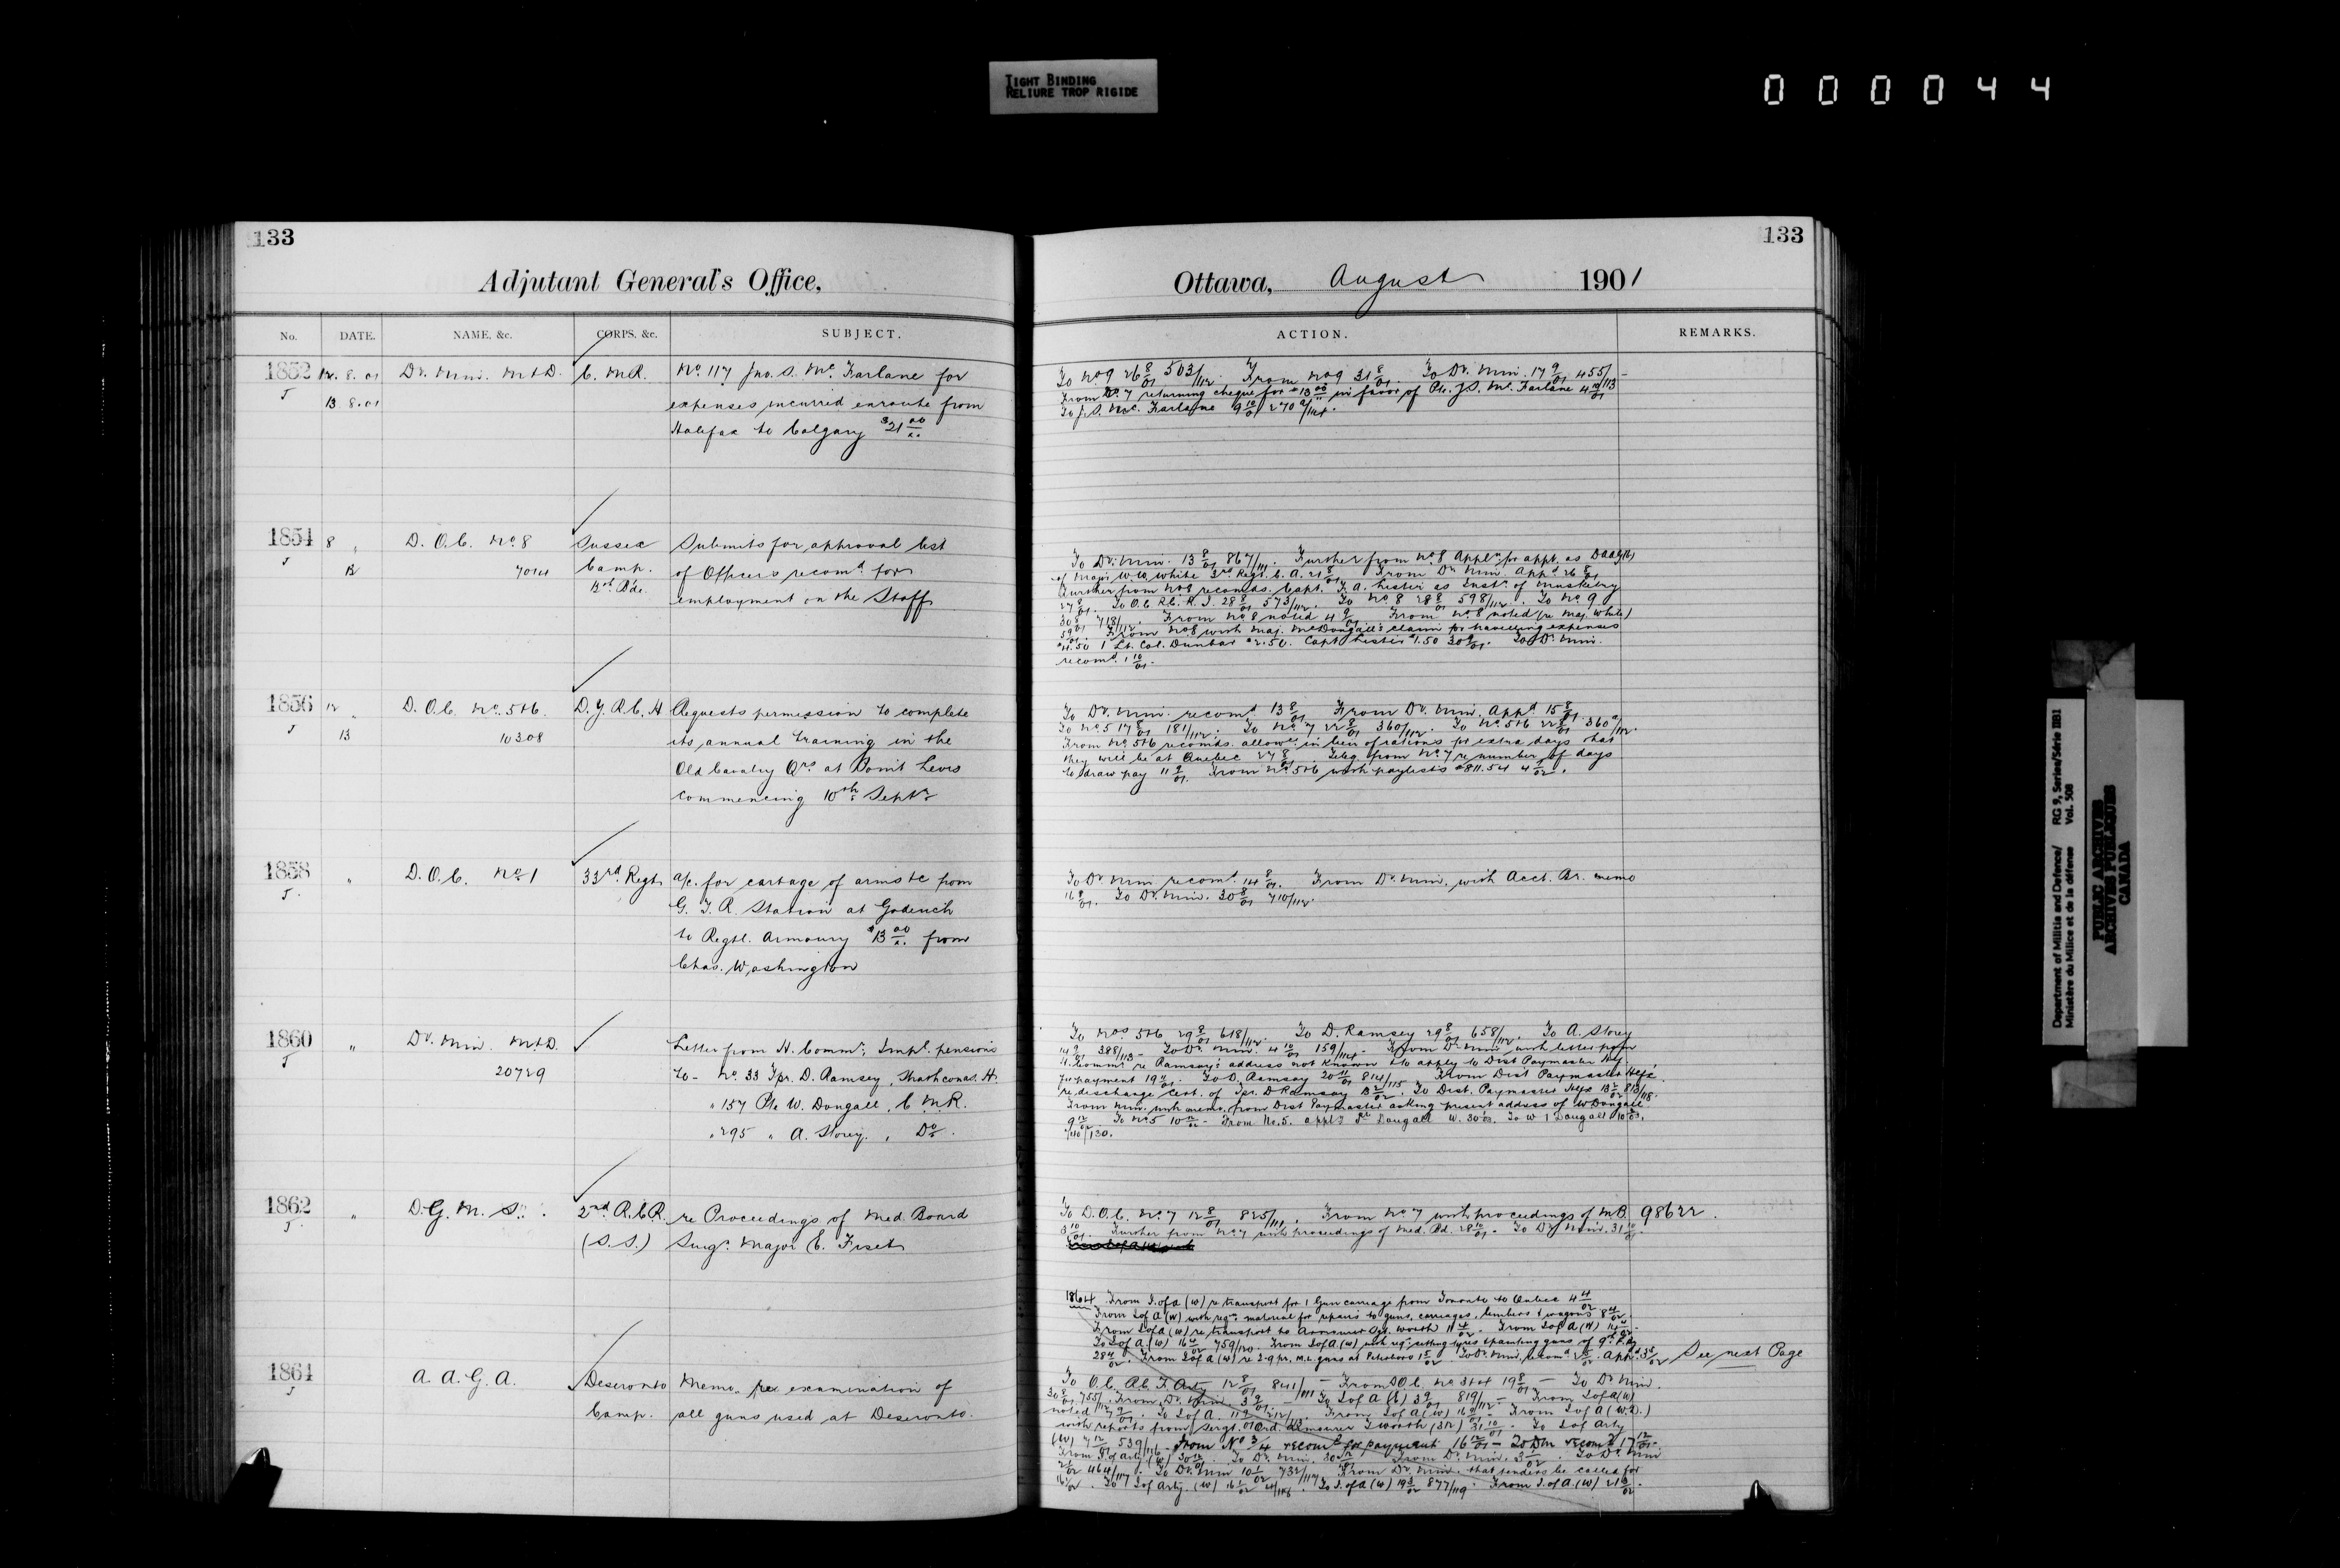 TIGHT BINDING
RELIURE TROP RIGIDE
000044
133
Adjutant General's Office,
No. DATE. NAME, &c. CORPS, &c. SUBJECT.
1852 12. 8. 01 Dr. Min. M&D. C. M.R. No 117 Jno. S. McFarlane for
J 13. 8. 01 expenses incurred enroute from
Halifax to Calgary $21 00/x.
1854 8 " D. O. C. No. 8 Sussex Submits for approval list
J 13 7014 Camp. of Officers recomd for
12th Bde. employment on the Staff
1856 12 " D. O. C. No. 5&6. D. Y. R. C. H Requests permission to complete
J 13 10308 its annual training in the
Old Cavalry Qrs. at Point Levis
commencing 10th Septr
1858 " D. O. C. No 1 33rd Regt a/c. for cartage of arms &c from
J. G. T. R. Station at Goderich
to Regtl. Armoury $13 00/x. from
Chas. Washington
1860 " Dr. Min. M&D. Letter from H. Commr; Impl. pensions
J 20729 to - No. 33 Tpr. D. Ramsey, Strathconas H.
" 157 Pte W. Dougall, C. M.R.
" 295 " A. Storey. , Do.
1862 " D. G. M. S. 2nd R.C.R. re Proceedings of Med. Board
J. (S.S.) Surg. Major E. Fiset
1864 A. A. G. A. Deseronto Memo. re examination of
J Camp. all guns used at Deseronto.
133
Ottawa, August 1901
ACTION. REMARKS.
To No 9 26 8/01 503/112. From No 9 31 8/01. To Dr. Min. 17 9/01 455/113
From No. 7 returning cheque for $13 00 in favor of Pte. J.S. McFarlane 4 10/01
To J. S. McFarlane 9 10/01 270/114.
To Dr. Min. 13 8/01 867/111. Further from No. 8 Appln for appt. as DAAG
of Major W.W. White 3rd Regt. C. A. 21 8/01 From Dr Min Appd 26 8/01
Further from No 8 recomds. Capt. F. A. Lister as Instr. of Musketry
27 8/01. To O.C. R.C.R.I. 28 8/01 573/112. To No 8 28 8/01 598/112. To No 9
30 8/01 718/112. From No 8 noted 4 9/01. From No 8 noted (re Maj. White)
5 9/01. From No 8 with Maj. McDougall's claim for travelling expenses
$4.50 1 Lt. Col. Dunbar $2.50. Capt Lister $1.50 30 9/01. To Dr. Min.
recomd. 1 10/01.
To Dr. Min. recomd 13 8/01 From Dr. Min. Appd 15 8/01.
To No 5 17 8/01 181/112. To No. 7 22 8/01 360/112. To No. 5&6 22 8/01 360/112.
From No. 5&6 recomds. allowce. in lieu of rations for extra days that
they will be at Quebec 27 8/01. Teleg. from No. 7 re number of days
to draw pay 11 9/01. From No. 5&6 with paylists $811.54 4 2/02.
To Dr. Min recomd. 14 8/01. From Dr. Min. with Acct. Br. memo
16 8/01. To Dr. Min. 30 8/01 710/112.
To Nos 5&6 29 8/01 618/112. To D. Ramsey 29 8/01 658/112. To A. Storey
14 9/01 388/113 - To Dr. Min. 4 10/01 159/114 - From Dr Min with letter from
H. Commr re Ramsay's address not known & to apply to Dist Paymaster Hfx.
for payment 19 11/01. To D. Ramsay 20 11/01 814/115 From Dist Paymaster Hfx.
re discharge Cert. of Tpr. D Ramsay 13 2/02 To Dist. Paymaster Hfx 13 2/02 813/118.
From Min. with memo. from Dist Paymaster asking present address of W Dougall
9 12/02. To No. 5 10 12/02 - From No. 5. Dougall W. 30. To W Dougall
/130.
To D. O. C. No. 7 12 8/01 825/111. From No. 7 with proceedings of M.B. 98622.
3 10/01. Further from No. 7 with proceedings of Med. Bd. 28 10/01 - To Dr Min. 31 10/01.
1864 From I. of A (W) re transport for 1 Gun carriage from Toronto to Quebec 4 4/02
From I of A (W) with reqn. material for repairs to guns, carriages, limbers & wagons 8 4/02
From I of A (W) re transport to Armourer Sgt. Worth 11 4/02. From I of A (W) 14 4/02.
To I of A. (W) 16 4/02 759/120. From I of A. (W) with reqn. painting guns of 9th F. By.
28 4/02. From I of A (W) re 2-9 pr. M.L. guns at Peterboro 1 5/02. To Dr. Min. recomd 2 5/02. Appd. 3 5/02 See next Page
To O.C. R.C.F. Arty 12 8/01 841/111 - From D.O.C. No. 3&4 19 8/01 - To Dr Min.
30 8/01 755/112. From Dr. Min. 3 9/01. - To I of A (C) 3 9/01 819/112 - From I of A (W)
noted 7 9/01. To I of A. 11 9/01 212/113. From I of A (W) 16 9/01 - From I of A (W.)
with reports from Sergt. Ord. Armourer Worth 31 10/01. To I of Arty
(W) 7 12/01 539/116 - From No 3/4 recomd for payment 16 12/01 - To Dm recomd 17 12/01.
From I. of Arty (W) 30 12/01. To Dr. Min. 30 12/01 From Dr. Min. 3 1/02. To Dr. Min
2 1/02 464/117. To Dr. Min 10 1/02 732/117 From Dr. Min. that tenders be called for
16 1/02. To I of Arty. (W) 16 1/02. To I. of A (W) 19 3/02 877/119. From I. of A. (W) 21 3/02.
Department of Militia and Defence/ RG 9, Series/Série IIB1
Ministère du Milice et de la défense Vol. 508
PUBLIC ARCHIVES
ARCHIVES PUBLIQUES
CANADA